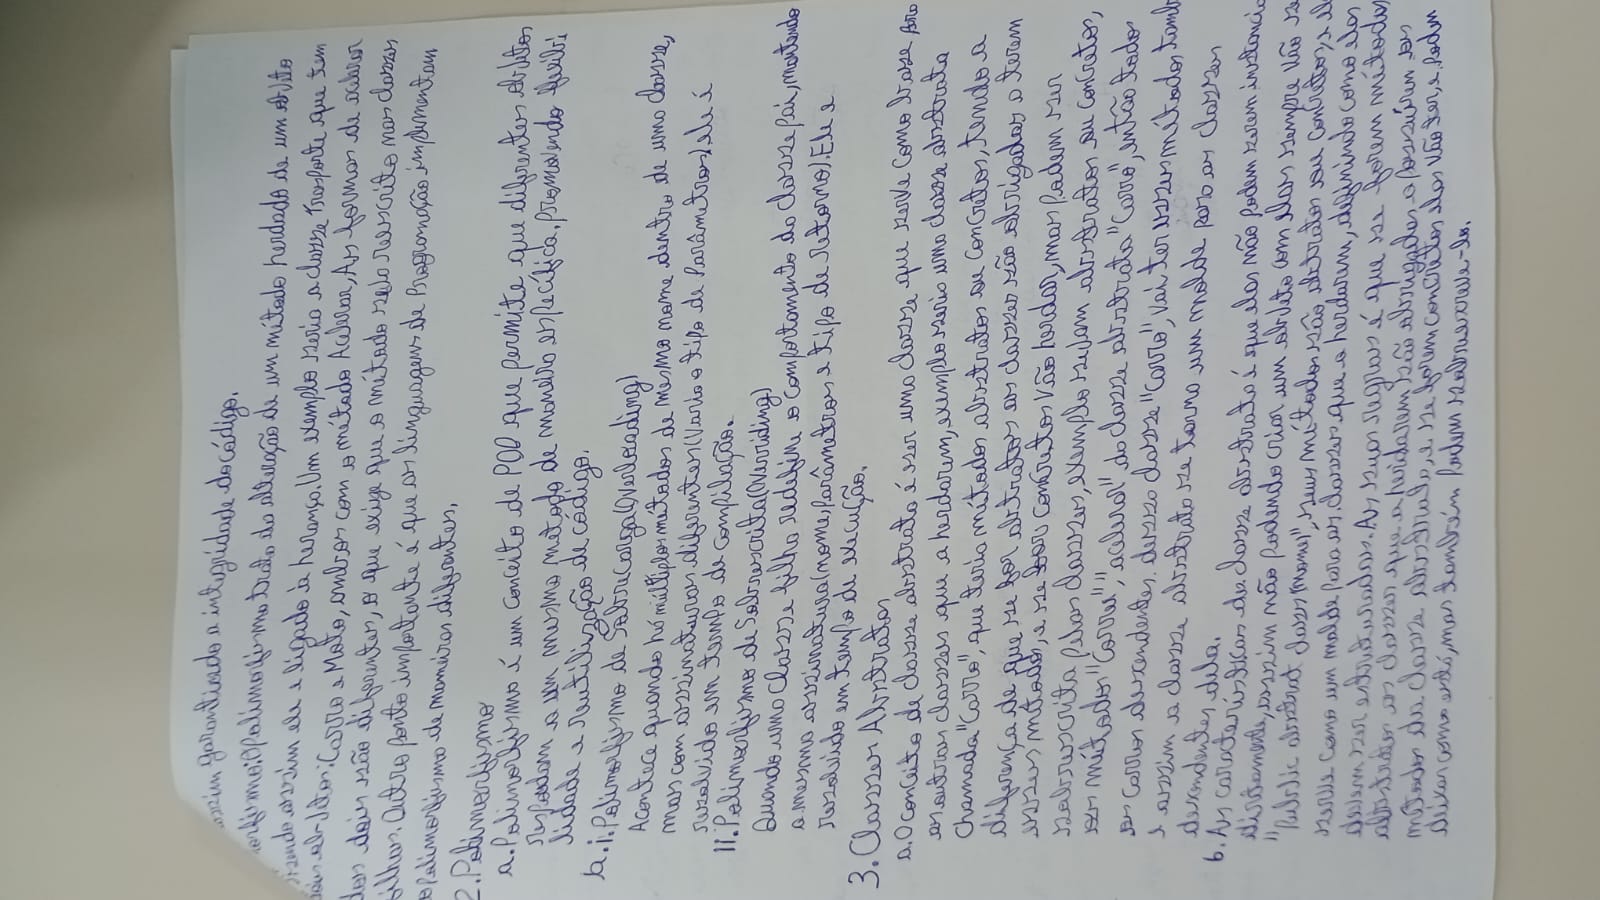 assim garantindo a integridade do código.
Polimorfismo: O polimorfismo trata da alteração de um método herdado de um objeto
sendo assim ele é ligado à herança. Um exemplo seria a classe Trasporte que tem
dois objetos: Carro e Moto, ambos com o método Acelerar, As formas de acelerar
dos dois são diferentes, o que exige que o método seja reescrito nas classes
filhas. Outro ponto importante é que as linguagens de Programação implementam
o polimorfismo de maneiras diferentes.
2. Polimorfismo
a. Polimorfismo é um conceito de POO que permite que diferentes objetos
respondam a um mesmo método de maneira específica, promovendo flexibi
lidade e reutilização de código.
b. i. Polimorfismo de Sobrecarga (Overloading)
Acontece quando há múltiplos métodos de mesmo nome dentro de uma classe,
mas com assinaturas diferentes (Varia o tipo de Parâmetros) ele é
resolvido em tempo de compilação.
II. Polimorfismo de Sobrescrita (Overriding)
Quando uma classe filha redefine o comportamento da classe pai, mantendo
a mesma assinatura (nome, parâmetros e tipo de retorno). Ele é
resolvido em tempo de execução.
3. Classes Abstratas
a. O conceito de classe abstrata é ser uma classe que serve como base para
as outras classes que a herdarem, exemplo seria uma classe abstrata
chamada "Carro", que teria métodos abstratos ou concretos, tendo a
diferença de que se for abstratos as classes são obrigadas a terem
esses métodos, e se for concretos vão herdar, mas podem ser
sobrescrita pelas classes, exemplo sejam abstratos ou concretos,
os métodos "Correr", "acelerar" da classe abstrata "Carro", então todos
os carros descendentes dessa classe "Carro", vai ter esses métodos, tamb
e assim a classe abstrata se torna um molde para as classes
descendentes dela.
b. As características da classe abstrata é que elas não podem serem instancia
diretamente, assim não podendo criar um objeto com elas sempre vão se
"Public abstract class nome", seus métodos são abstratos ou concretos, e ela
serve como um molde para as classes que a herdarem, definindo como elas
devem ser estruturadas. As suas regras é que se forem métodos
abstratos as classes que a herdarem são obrigadas a possuírem os
métodos da classe abstrata, e se forem concretos elas vão ter, e podem
deixar como está, mas também podem sobrescreve-lo.